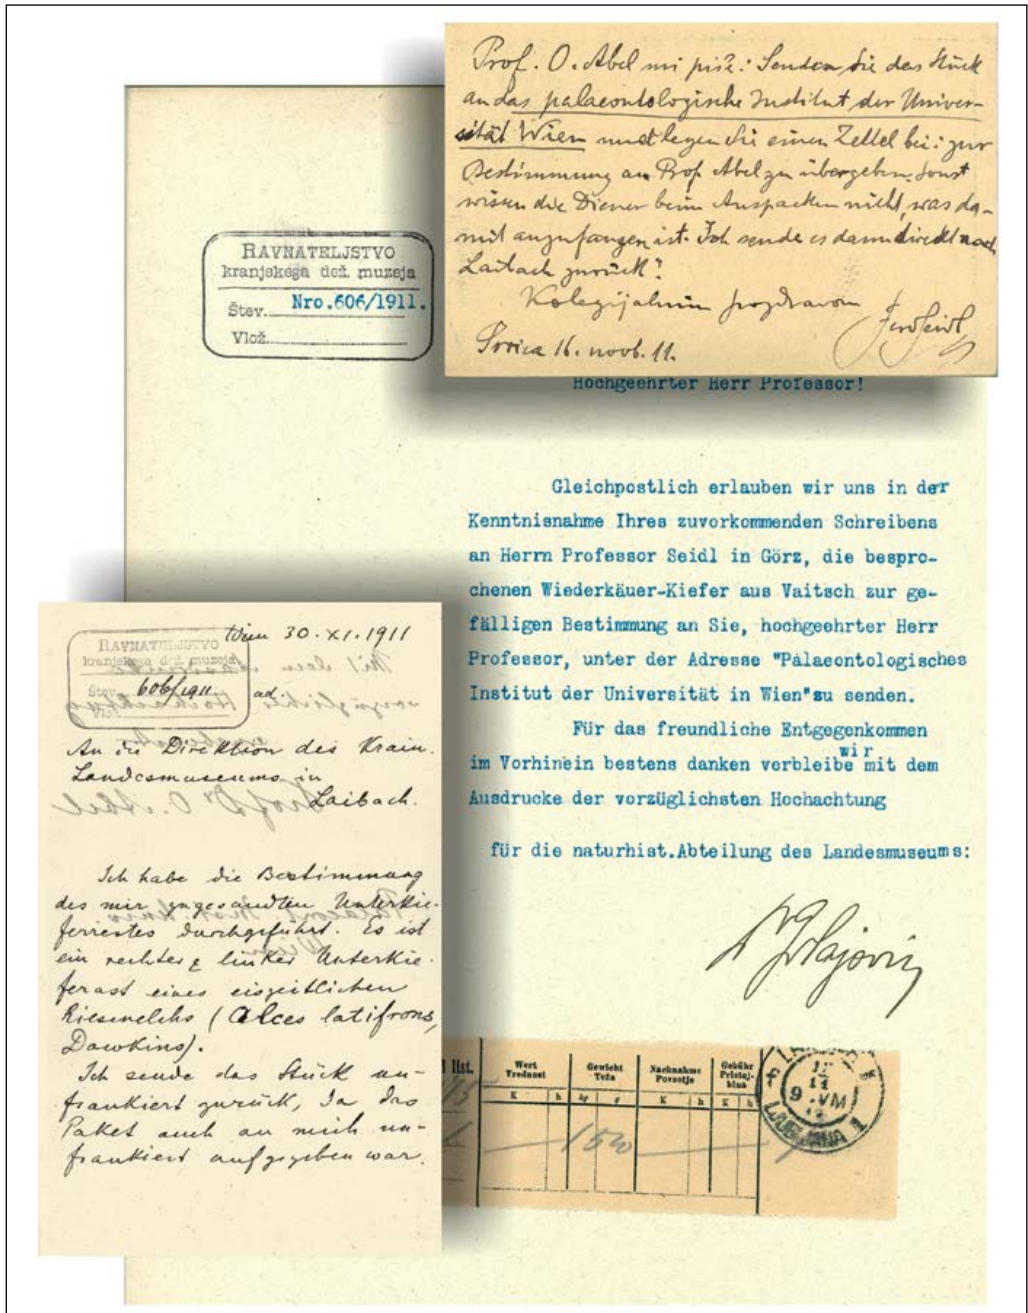 Prof. O. Abel mi piše: Senden Sie das Stück
an das palaeontologische Institut der Univer-
sität Wien und legen Sie einen Zettel bei: zur
Bestimmung an Prof. Abel zu übergeben. Sonst
wissen die Diener beim Auspacken nicht, was da-
mit anzufangen ist. Ich sende es dann direkt nach
Laibach zurück".
Kolegijalnim pozdravom
Ferd Seidl
Gorica 16. novb. 11.
RAVNATELJSTVO
kranjskega dež. muzeja
Štev. Nro.606/1911.
Vlož.
Hochgeehrter Herr Professor!
Gleichpostlich erlauben wir uns in der
Kenntnisnahme Ihres zuvorkommenden Schreibens
an Herrn Professor Seidl in Görz, die bespro-
chenen Wiederkäuer-Kiefer aus Vaitsch zur ge-
fälligen Bestimmung an Sie, hochgeehrter Herr
Professor, unter der Adresse "Palaeontologisches
Institut der Universität in Wien" zu senden.
Für das freundliche Entgegenkommen
wir
im Vorhinein bestens danken verbleibe mit dem
Ausdrucke der vorzüglichsten Hochachtung
für die naturhist.Abteilung des Landesmuseums:
Wien 30. XI. 1911
RAVNATELJSTVO
kranjskega dež. muzeja
Štev. 606/1911
ad.
An die Direktion des Krain.
Landesmuseums in
Laibach.
Prof. Dr. O. Abel
Ich habe die Bestimmung
des mir zugesandten Unterkie-
ferrestes durchgeführt. Es ist
ein rechter & linker Unterkie-
ferast eines eiszeitlichen
Riesenelchs (Alces latifrons,
Dawkins).
Ich sende das Stück un-
frankiert zurück, da das
Paket auch an mich un-
frankiert aufgegeben war.
list.
Wert
Vrednost
Gewicht
Teža
Nachnahme
Povzetje
Gebühr
Pristoj-
bina
K h kg g K h K h
1 500
9 VM
LJUBLJANA 1